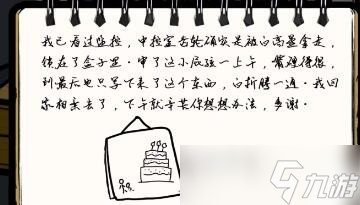 我已看过监控，中控室齿轮确实是被白高盈拿走，
锁在了盒子里。审了这小屁孩一上午，嘴硬得很，
到最后也只写下来了这个东西，白折腾一通。我回
家相亲去了，下午就辛苦你想想办法，多谢。
九游